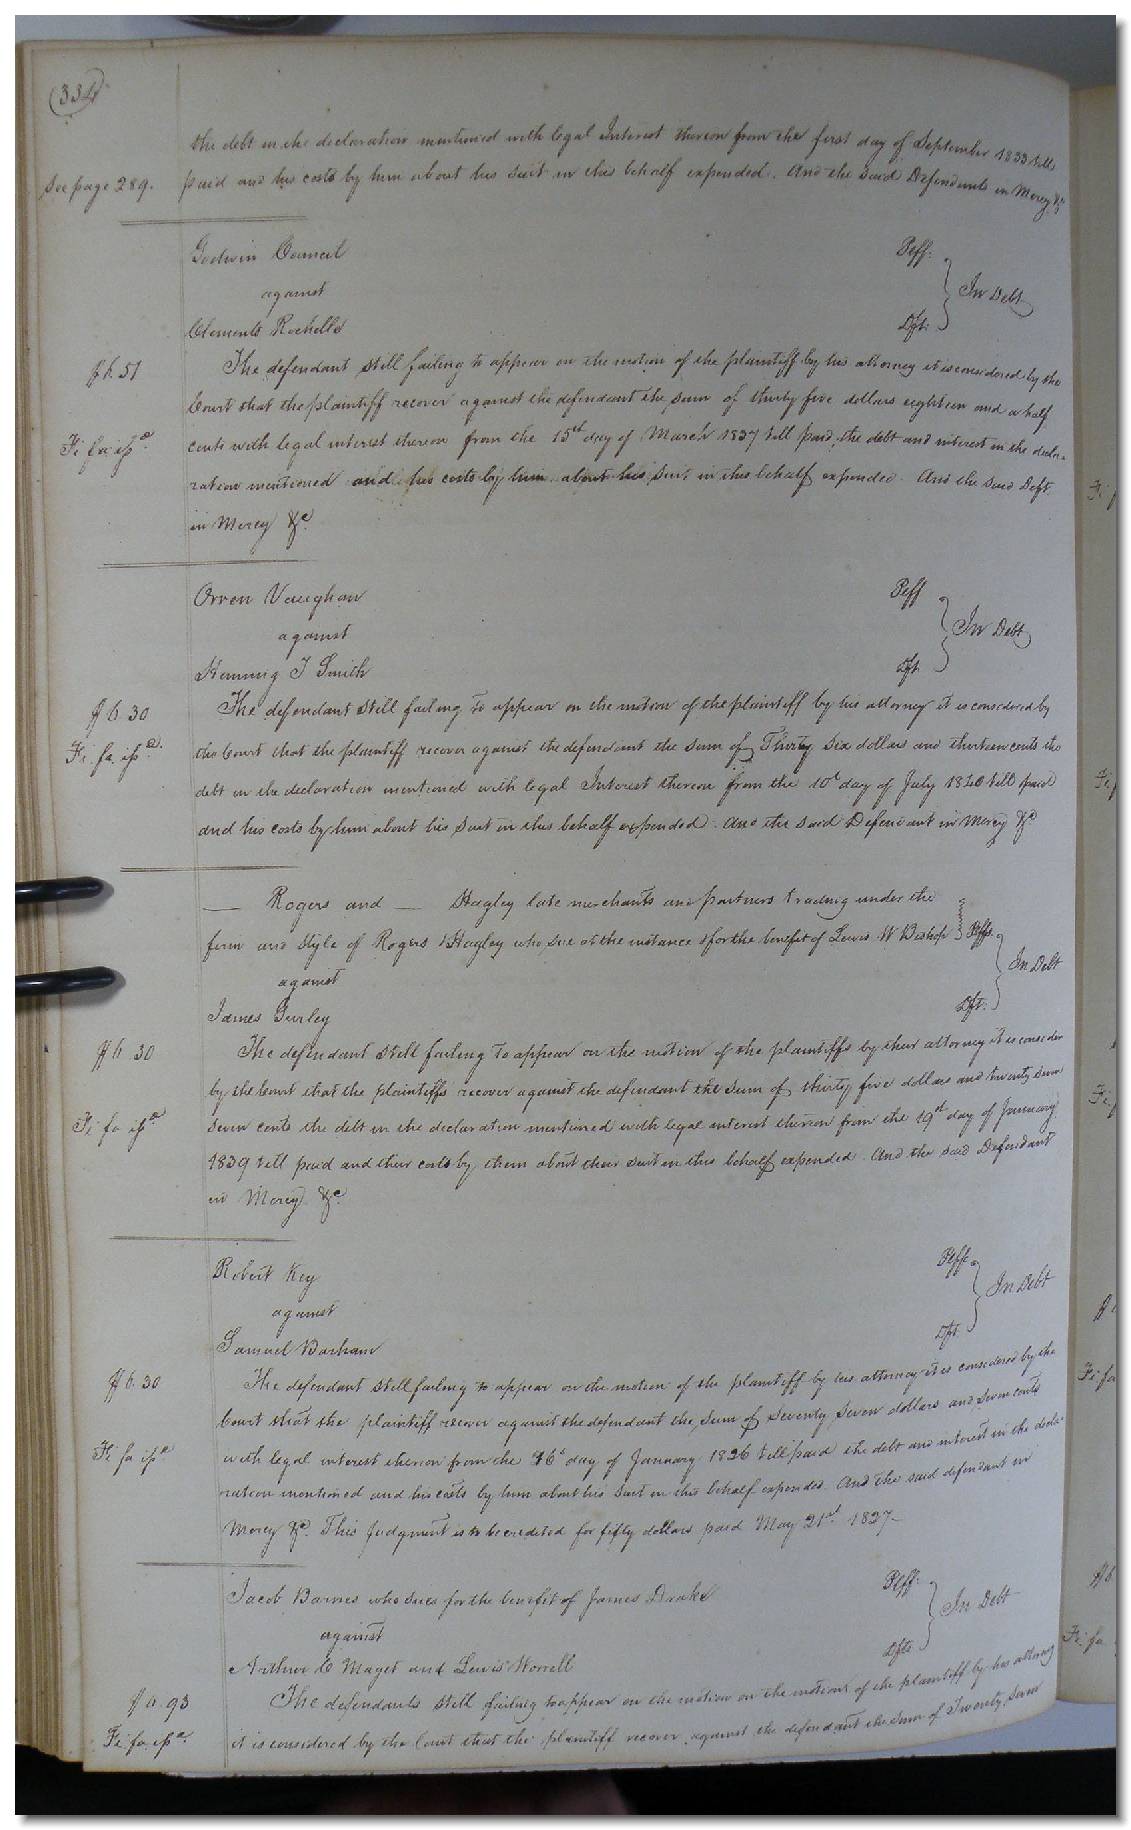 334
the debt in the declaration mentioned with legal Interest thereon from the first day of September 1833 till
See page 289. paid and his costs by him about his suit in this behalf expended. And the said Defendants in Mercy &c
Godwin Council Plff.
against In Debt
Clements Rochelle Dft.
The defendant still failing to appear on the motion of the plaintiff by his attorney it is considered by the
$6.51
Court that the plaintiff recover against the defendant the sum of thirty five dollars eighteen and a half
Fi fa issd. cents with legal interest thereon from the 15th day of March 1837 till paid, the debt and interest in the decla-
ration mentioned and his costs by him about his suit in this behalf expended. And the said Deft.
in Mercy &c.
Orren Vaughan Plff
against In Debt
Henning J Smith Dft.
$6.30 The defendant still failing to appear on the motion of the plaintiff by his attorney it is considered by
Fi. fa. issd. the Court that the plaintiff recover against the defendant the sum of Thirty Six dollars and thirteen cents the
debt in the declaration mentioned with legal Interest thereon from the 10th day of July 1840 till paid
and his costs by him about his suit in this behalf expended. And the said Defendant in Mercy &c
— Rogers and — Hagley late merchants and partners trading under the
firm and style of Rogers & Hagley who sue at the instance & for the benefit of Lewis W Bishop Plffs.
against In Debt
James Gurley Dft.
$6.30 The defendant still failing to appear on the motion of the plaintiffs by their attorney it is consider
by the Court that the plaintiffs recover against the defendant the sum of thirty five dollars and twenty seven
Fi fa issd. seven cents the debt in the declaration mentioned with legal interest thereon from the 19th day of January
1839 till paid and their costs by them about their suit in this behalf expended. And the said Defendant
in Mercy &c.
Robert Key Plff.
against In Debt
Samuel Barham Dft.
$6.30 The defendant still failing to appear on the motion of the plaintiff by his attorney it is considered by the
Court that the plaintiff recover against the defendant the sum of Seventy Seven dollars and seven cents
Fi fa issd. with legal interest thereon from the 16th day of January 1826 till paid the debt and interest in the decla-
ration mentioned and his costs by him about his suit in this behalf expended. And the said defendant in
Mercy &c. This Judgment is to be credited for fifty dollars paid May 21st 1827—
Jacob Barnes who sues for the benefit of James Drake Plff.
against In Debt
Arthur C Maget and Lewis Worrell Dfts
$6.93 The defendants still failing to appear on the motion on the motion of the plaintiff by his attorney
Fi. fa. issd. it is considered by the Court that the plaintiff recover against the defendant the sum of Twenty seven